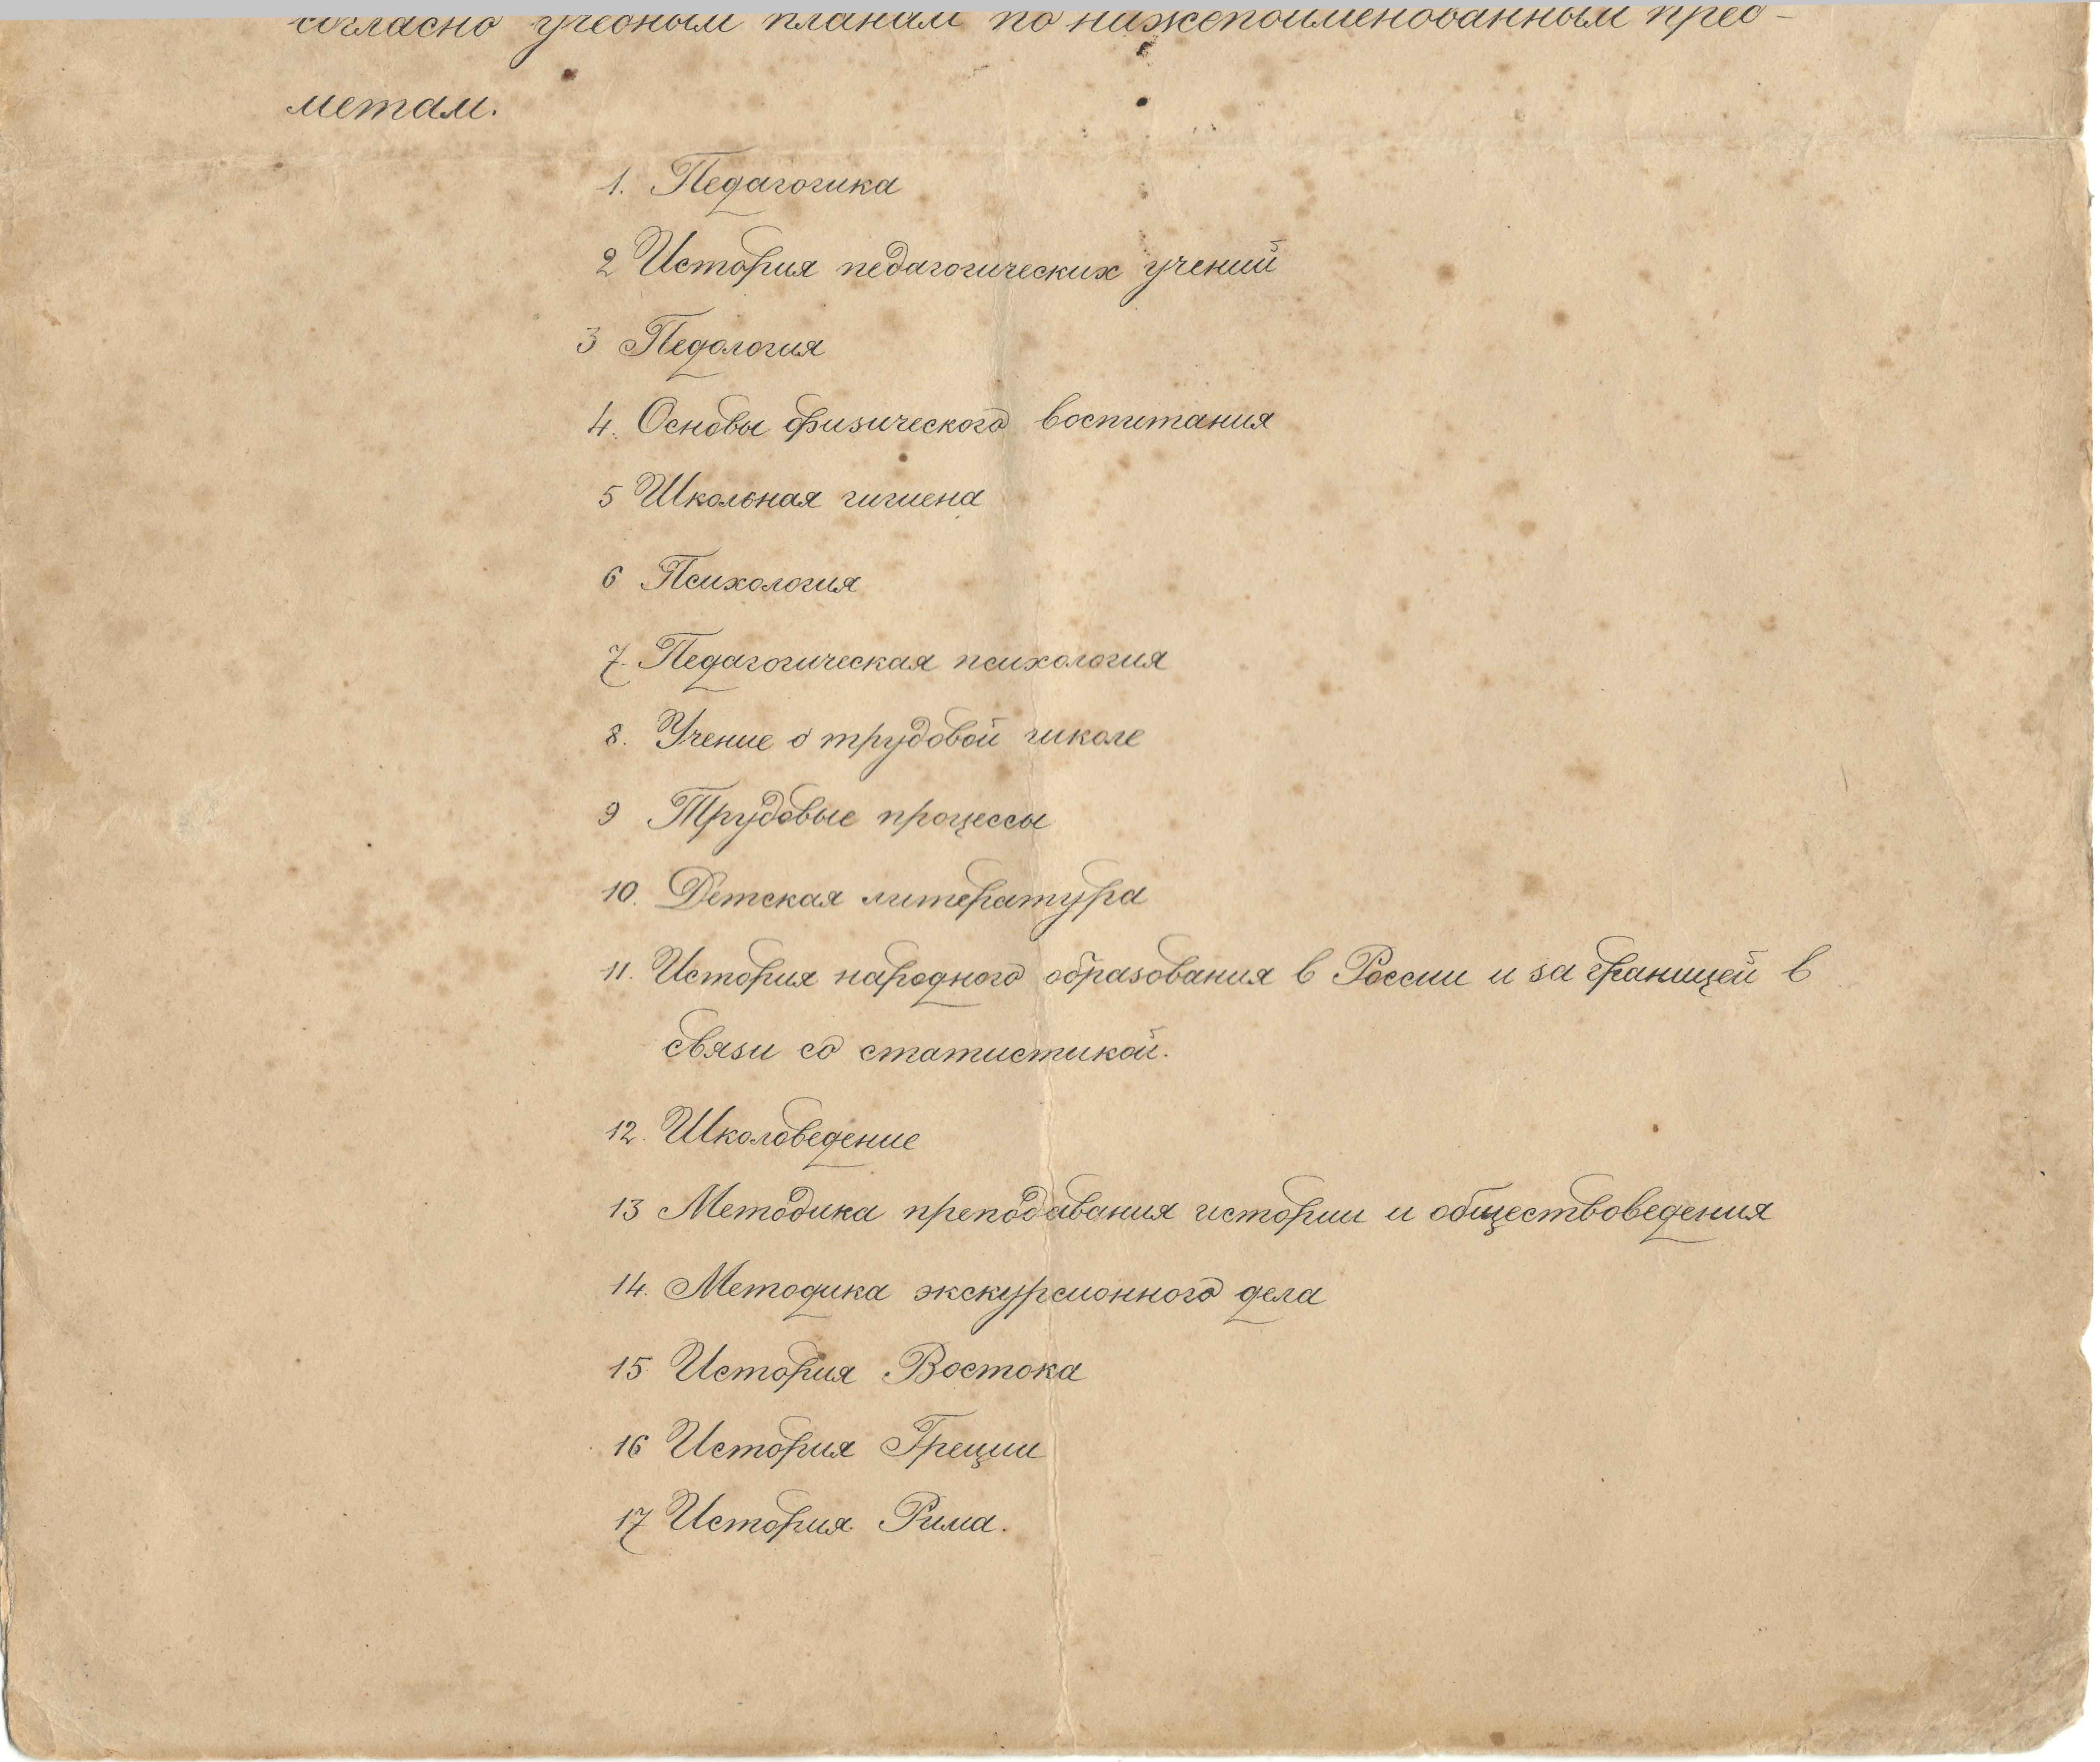 согласно учебным планам по нижепоименованным пред-
метам.
1. Педагогика
2 История педагогических учений
3 Педология
4. Основы физического воспитания
5 Школьная гигиена
6 Психология
7. Педагогическая психология
8. Учение о трудовой школе
9 Трудовые процессы
10. Детская литература
11. История народного образования в России и за границей в
связи со статистикой.
12. Школоведение
13 Методика преподавания истории и обществоведения
14. Методика экскурсионного дела
15 История Востока
16 История Греции
17 История Рима.